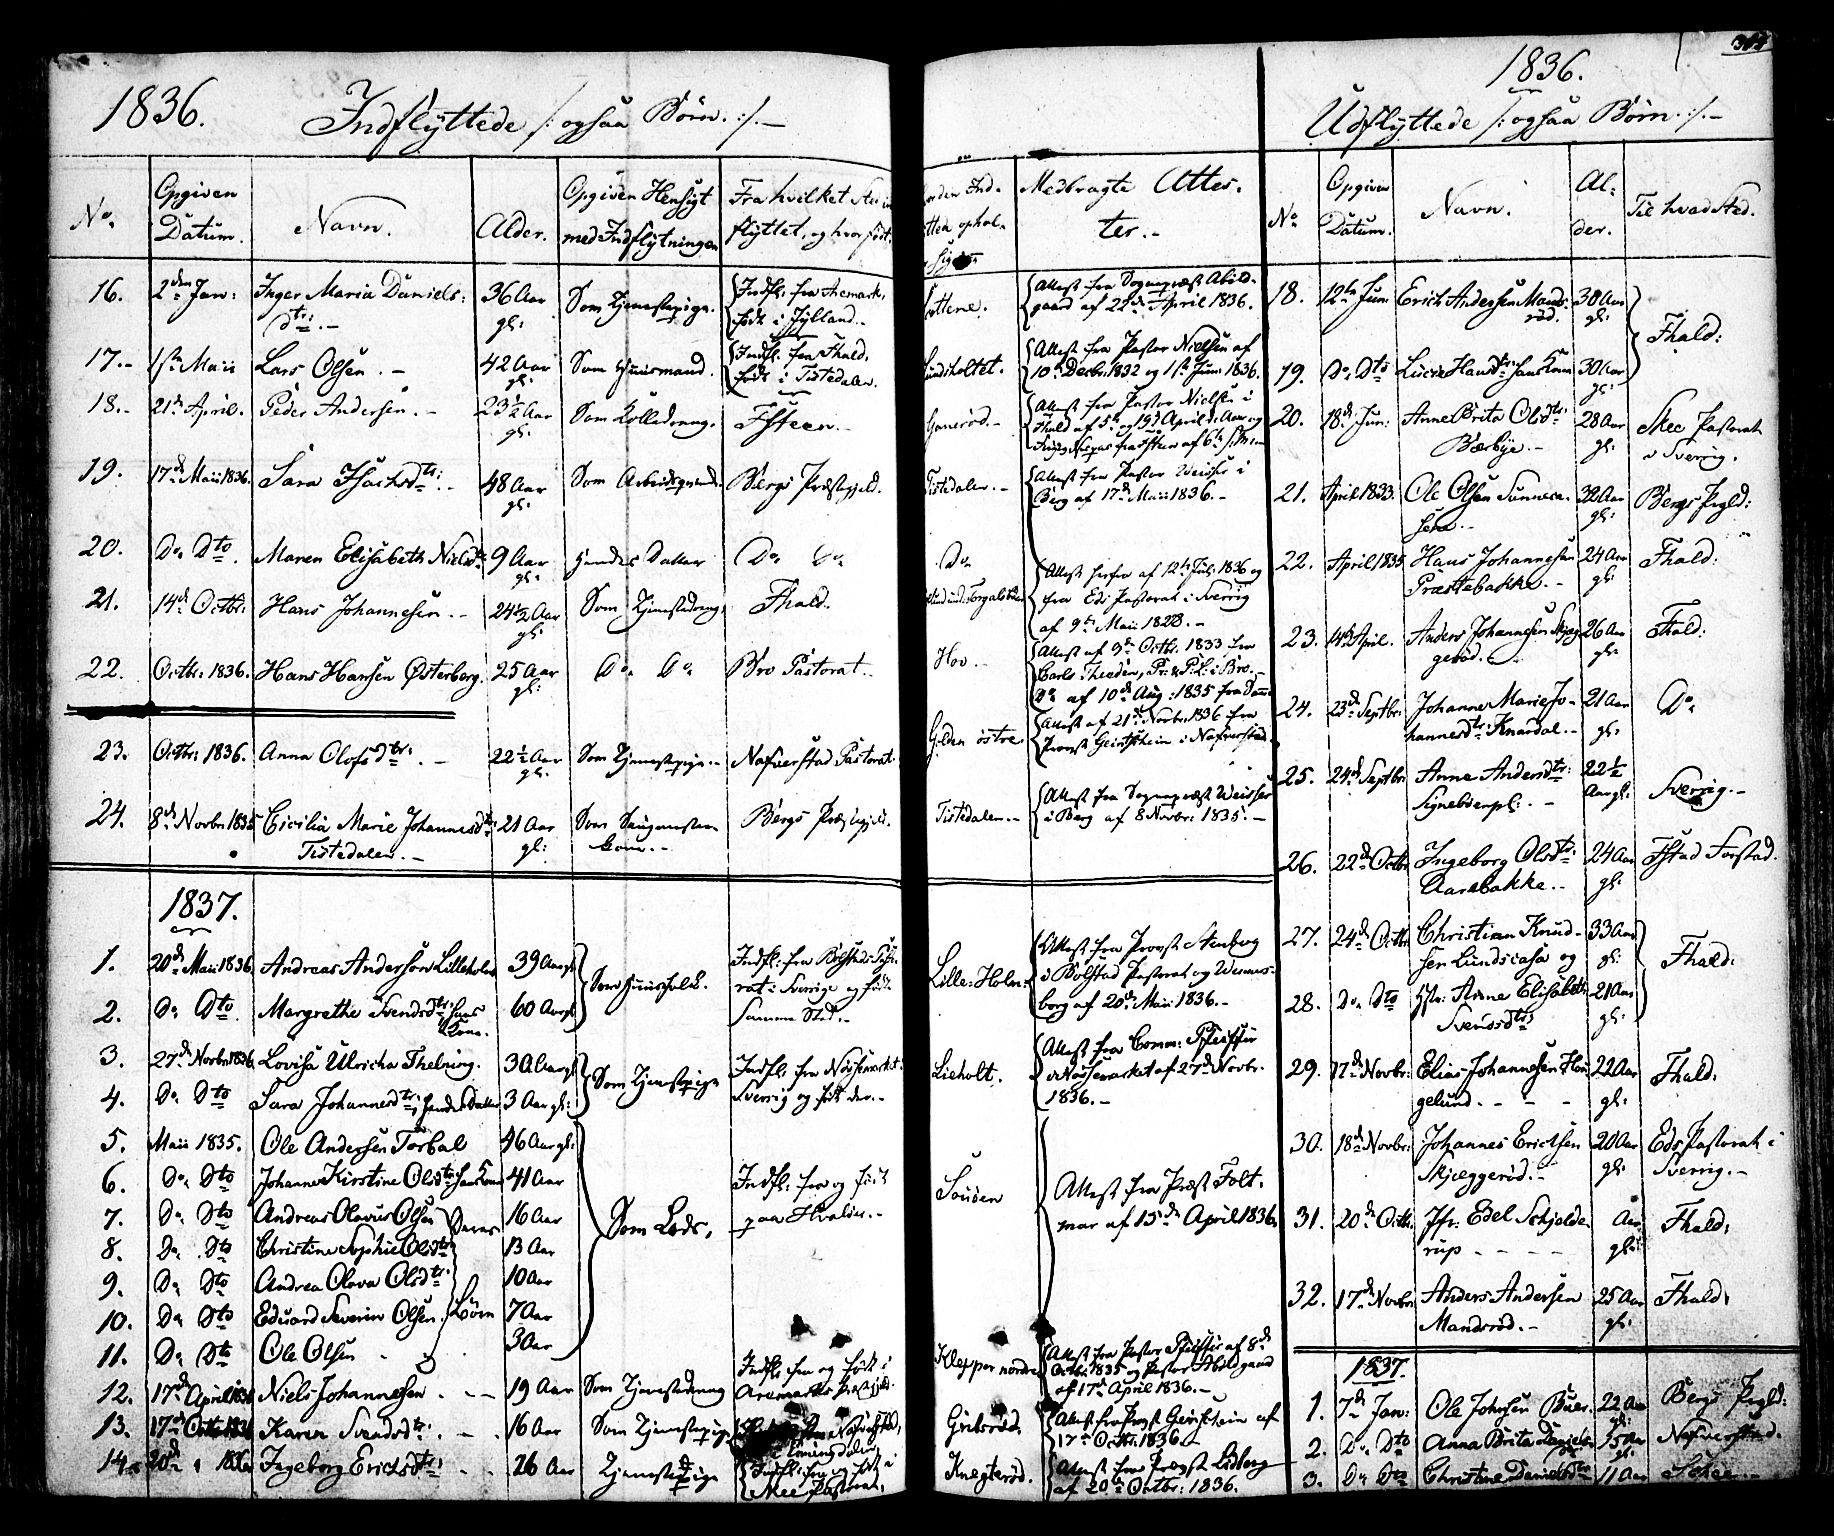 1836. Indflyttede /: ogsaa Børn. :/. —
No. Opgiven Datum. Navn. Alder. Opgiven Hensigt med Indflytningen Fra hvilket Sted in flyttet, og hvor født. Medbragte Attes- ter. —
16. 2den Jan: Inger Maria Daniels: dtr: — 36 Aar gl: Som Tjenestepige. Indfl: fra Aremark, født i Jylland. Attest fra Sognepræst Abild- gaard af 22de April 1836.
17. 1ste Maii Lars Olsen. 42 Aar gl: Som Huusmand. Indfl. fra Fhald, født i Tistedalen. Attest fra Pastor Nielsen af 10de Decbr: 1832 og 1ste Juni 1836.
18. 21de April. Peder Andersen. 23½ Aar gl: Attest fra Pastor Nielsen i Fhald af 5te og 19de April d: Aar og
19. 17de Maii 1836. Sara Isachsdtr: 48 Aar gl: Bergs Præstegjeld. Tistedalen. Attest fra Pastor Weisser i Berg af 17de Maii 1836.
20. Do Dto Maren Elisabeth Nielsdtr 9 Aar gl: Hendes Datter Do Do Do
21. 14de Octbr: Hans Johannesen. 24½ Aar gl: Som Tjenestedreng. Fhald. Attest herfra af 12te Juli 1836 og fra Eds Pastorat i Sverrig af 9de Maii 1828.
22. Octbr: 1836. Hans Hansen Østerberg. 25 Aar gl: Do Do Bro Pastorat. Hov. Attest af 9de Octbr. 1833 fra Carls Theeden, Pr: & P: L: i Bro. Do af 10de Aug: 1835 fra
23. Octbr: 1836. Anna Olofsdtr: 22½ Aar gl: Som Tjenestepige. Nafverstad Pastorat Golden østre. Attest af 21de Novbr: 1836 fra Provst i Nafverstad
24. 8de Novbr: 1835 Cicilia Marie Johannesdtr: Tistedalen. 21 Aar gl: Bergs Præstegjeld. Tistedalen. Attest fra Sognepræst Weisser i Berg af 8 Novbr: 1835.
1837.
1. 20de Maii 1836. Andreas Anderson Lilleholm 39 Aar gl: Som Huusfolk. Lille-Holm. Attest fra Provst Stenberg i Bolstad Pastorat og Wenners- borg af 20de Maii 1836.
2. Do Dto. Margrethe Svendsdtr: hans Kone. 60 Aar gl: Samme Sted.
3. 27de Novbr: 1836. Lovisa Ulricha Thelning. 30 Aar gl: Som Tjenestepige Indfl: fra Nössemarket Sverrig og født der. Lieholt. Attest fra Comm: i Nössemarket af 27de Novbr. 1836.
4. Do Dto Sara Johannesdtr: hendes Datter 3 Aar gl:
5. Maii 1835. Ole Andersen Torbal 46 Aar gl: Som Lods. Indfl: fra og født paa Hvaløer. Attest fra Præst Folt- mar af 15de April 1836.
6. Do Dto Johanne Kirstine Olsdtr hans Kone 41 Aar
7. Do Dto Andreas Olavus Olsen 16 Aar Deres Børn
8. Do Dto Christine Sophie Olsdtr: 13 Aar
9. Do Dto Andrea Olava Olsdtr: 10 Aar
10. Do Dto Eduard Severin Olsen 7 Aar
11. Do Dto Ole Olsen 3 Aar
12. 17de April 1836 Niels Johannesen 19 Aar Som Tjenestedreng Indfl: fra og født i Aremarks Præstegjeld. Klepper nordre Attest fra Pastor af 8de Octbr: 1835 og Pastor Abildgaard af 17de April 1836.
13. 17de Octbr: 1836 Karen Svendsdtr: 16 Aar Som Tjenestepige Attest fra Provst af 17de Octbr: 1836.
14. 20de 1836 Ingeborg Ericsdtr: 26 Aar Tjenestepige Indfl: fra og født i Skee Pastorat. Knegterød. Attest fra Provst Lidberg af 20de Octbr: 1836.
304
1836.
Udflyttede /: ogsaa Børn :/. —
No Opgiven Datum. Navn. Al- der. Til hvad Sted.
18. 12te Juni Erich Andersen Mands- rød. 30 Aar gl: Fhald:
19. Do Dto Lucie Hansdtr: hans Kone 30 Aar gl:
20. 18de Jun: Anne Brita Olsdtr: Bærbye. 28 Aar gl: Skee Pastorat i Sverrig.
21. April 1833. Ole Olsen 32 Aar gl: Bergs Pgjld:
22. April 1835 Hans Johannesen Præstebakke. 24 Aar gl: Fhald:
23. 14de April. Anders Johannesen Skjeg- gerød. 26 Aar gl: Fhald:
24. 23de Septbr: Johanne Marie Jo- hannesdtr: Knardal. 21 Aar gl: Do
25. 24de Septbr: Anne Andersdtr: 22½ Aar gl: Sverrig.
26. 22de Octbr: Ingeborg Olsdtr: Aarebakke. 24 Aar gl:
27. 24de Octbr: Christian Knud- sen og 33 Aar gl: Fhald:
28. Do Dto Anne Elisabeth Svensdtr: 21 Aar gl:
29. 17de Novbr: Elias Johannesen Hau- gelund. 22 Aar gl: Fhald:
30. 18de Novbr: Johannes Ericksen Skjeggerød. 20 Aar gl: Eds Pastorat i Sverrig.
31. 20de Octbr. Jfr: Edel Schjolde- rup Aar gl: Fhald:
32. 17de Novbr: Anders Andersen Mandsrød. 25 Aar gl: Fhald:
1837.
1. 7de Jan: Ole Johnsen 22 Aar gl: Bergs Pgjld:
2. Do Dto Anna Brita Danielsdtr 35 Aar gl: Nafverstad.
3. Do Dto Christine Danielsdtr 11 Aar Skee.